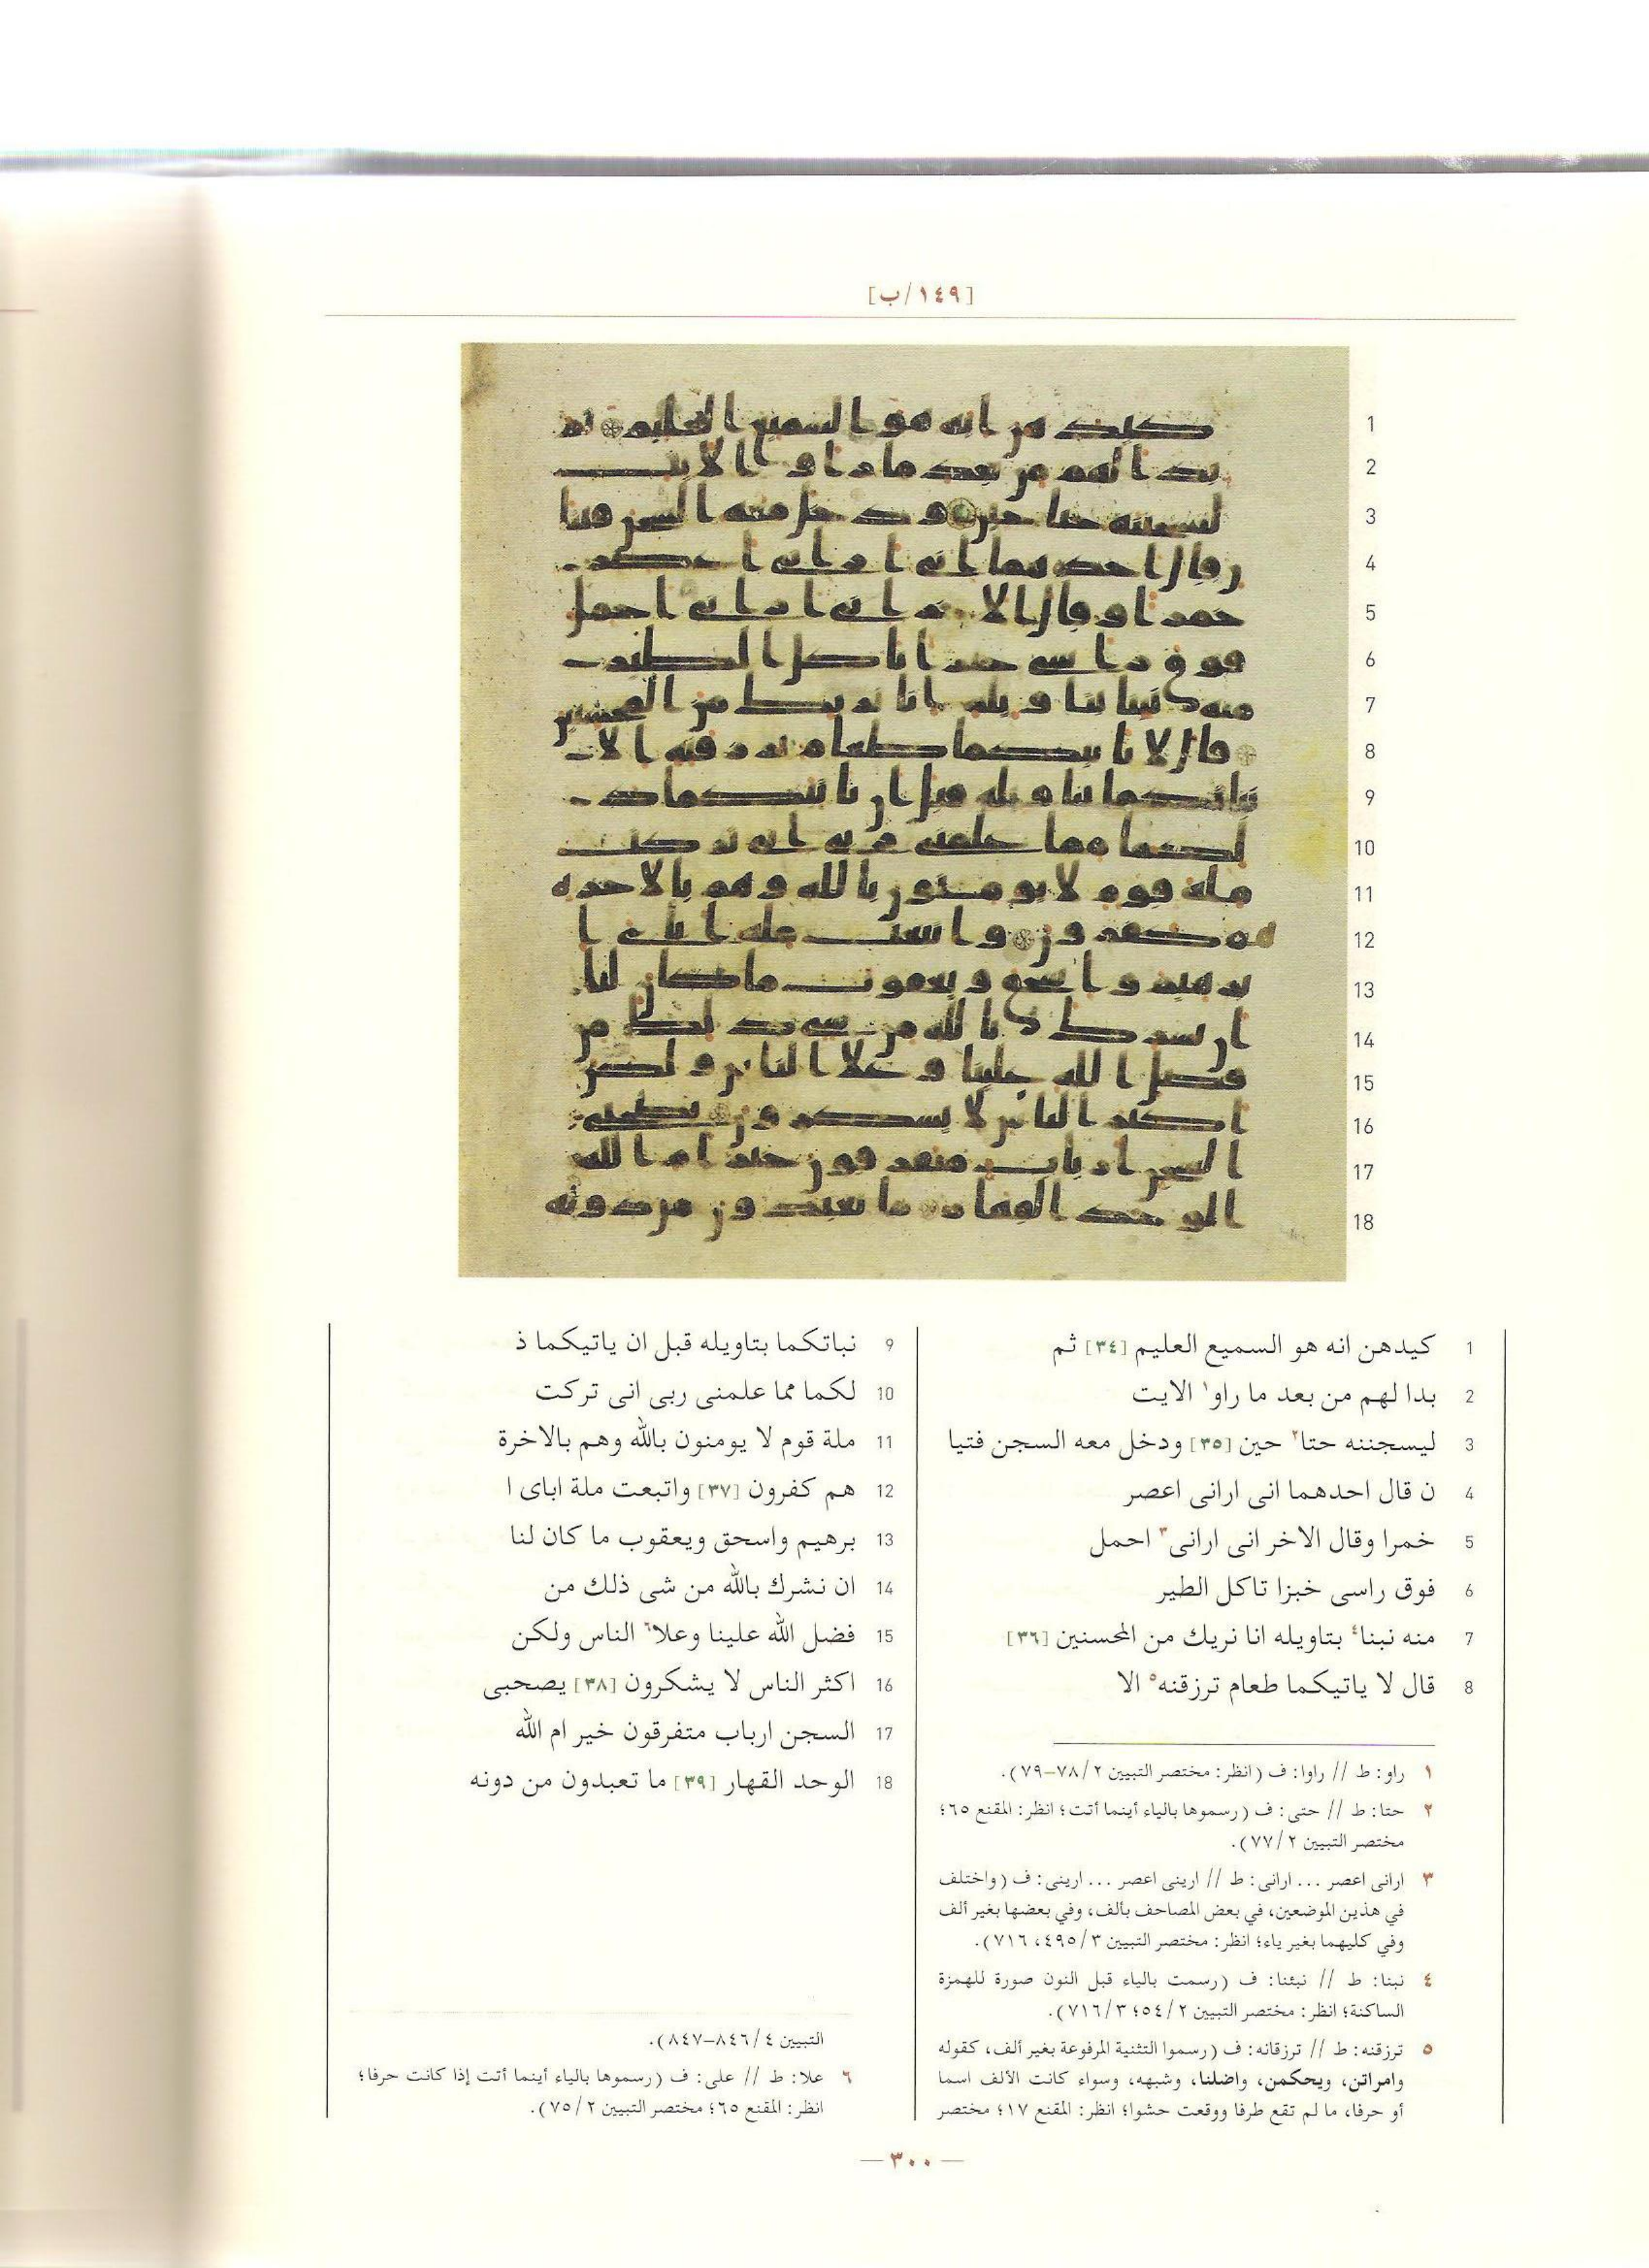 [١٤٩/ب]
1 كيدهن انه هو السميع العليم [٣٤] ثم
2 بدا لهم من بعد ما راو١ الايت
3 ليسجننه حتا٢ حين [٣٥] ودخل معه السجن فتيا
4 ن قال احدهما انى ارانى اعصر
5 خمرا وقال الاخر انى ارانى٣ احمل
6 فوق راسى خبزا تاكل الطير
7 منه نبنا٤ بتاويله انا نريك من المحسنين [٣٦]
8 قال لا ياتيكما طعام ترزقنه٥ الا
9 نباتكما بتاويله قبل ان ياتيكما ذ
10 لكما مما علمنى ربى انى تركت
11 ملة قوم لا يومنون بالله وهم بالاخرة
12 هم كفرون [٣٧] واتبعت ملة اباى ا
13 برهيم واسحق ويعقوب ما كان لنا
14 ان نشرك بالله من شى ذلك من
15 فضل الله علينا وعلا٦ الناس ولكن
16 اكثر الناس لا يشكرون [٣٨] يصحبى
17 السجن ارباب متفرقون خير ام الله
18 الوحد القهار [٣٩] ما تعبدون من دونه
١ راو: ط // راوا: ف (انظر: مختصر التبيين ٢/ ٧٨-٧٩).
٢ حتا: ط // حتى: ف (رسموها بالياء أينما أتت؛ انظر: المقنع ٦٥؛
مختصر التبيين ٢/ ٧٧).
٣ ارانى اعصر ... ارانى: ط // ارينى اعصر ... ارينى: ف (واختلف
في هذين الموضعين، في بعض المصاحف بألف، وفي بعضها بغير ألف
وفي كليهما بغير ياء؛ انظر: مختصر التبيين ٣/ ٤٩٥، ٧١٦).
٤ نبنا: ط // نبئنا: ف (رسمت بالياء قبل النون صورة للهمزة
الساكنة؛ انظر: مختصر التبيين ٢/ ٥٤؛ ٣/ ٧١٦).
٥ ترزقنه: ط // ترزقانه: ف (رسموا التثنية المرفوعة بغير ألف، كقوله
وامراتن، ويحكمن، واضلنا، وشبهه، وسواء كانت الألف اسما
أو حرفا، ما لم تقع طرفا ووقعت حشوا؛ انظر: المقنع ١٧؛ مختصر
التبيين ٤/ ٨٤٦-٨٤٧).
٦ علا: ط // على: ف (رسموها بالياء أينما أتت إذا كانت حرفا؛
انظر: المقنع ٦٥؛ مختصر التبيين ٢/ ٧٥).
— ٣٠٠ —